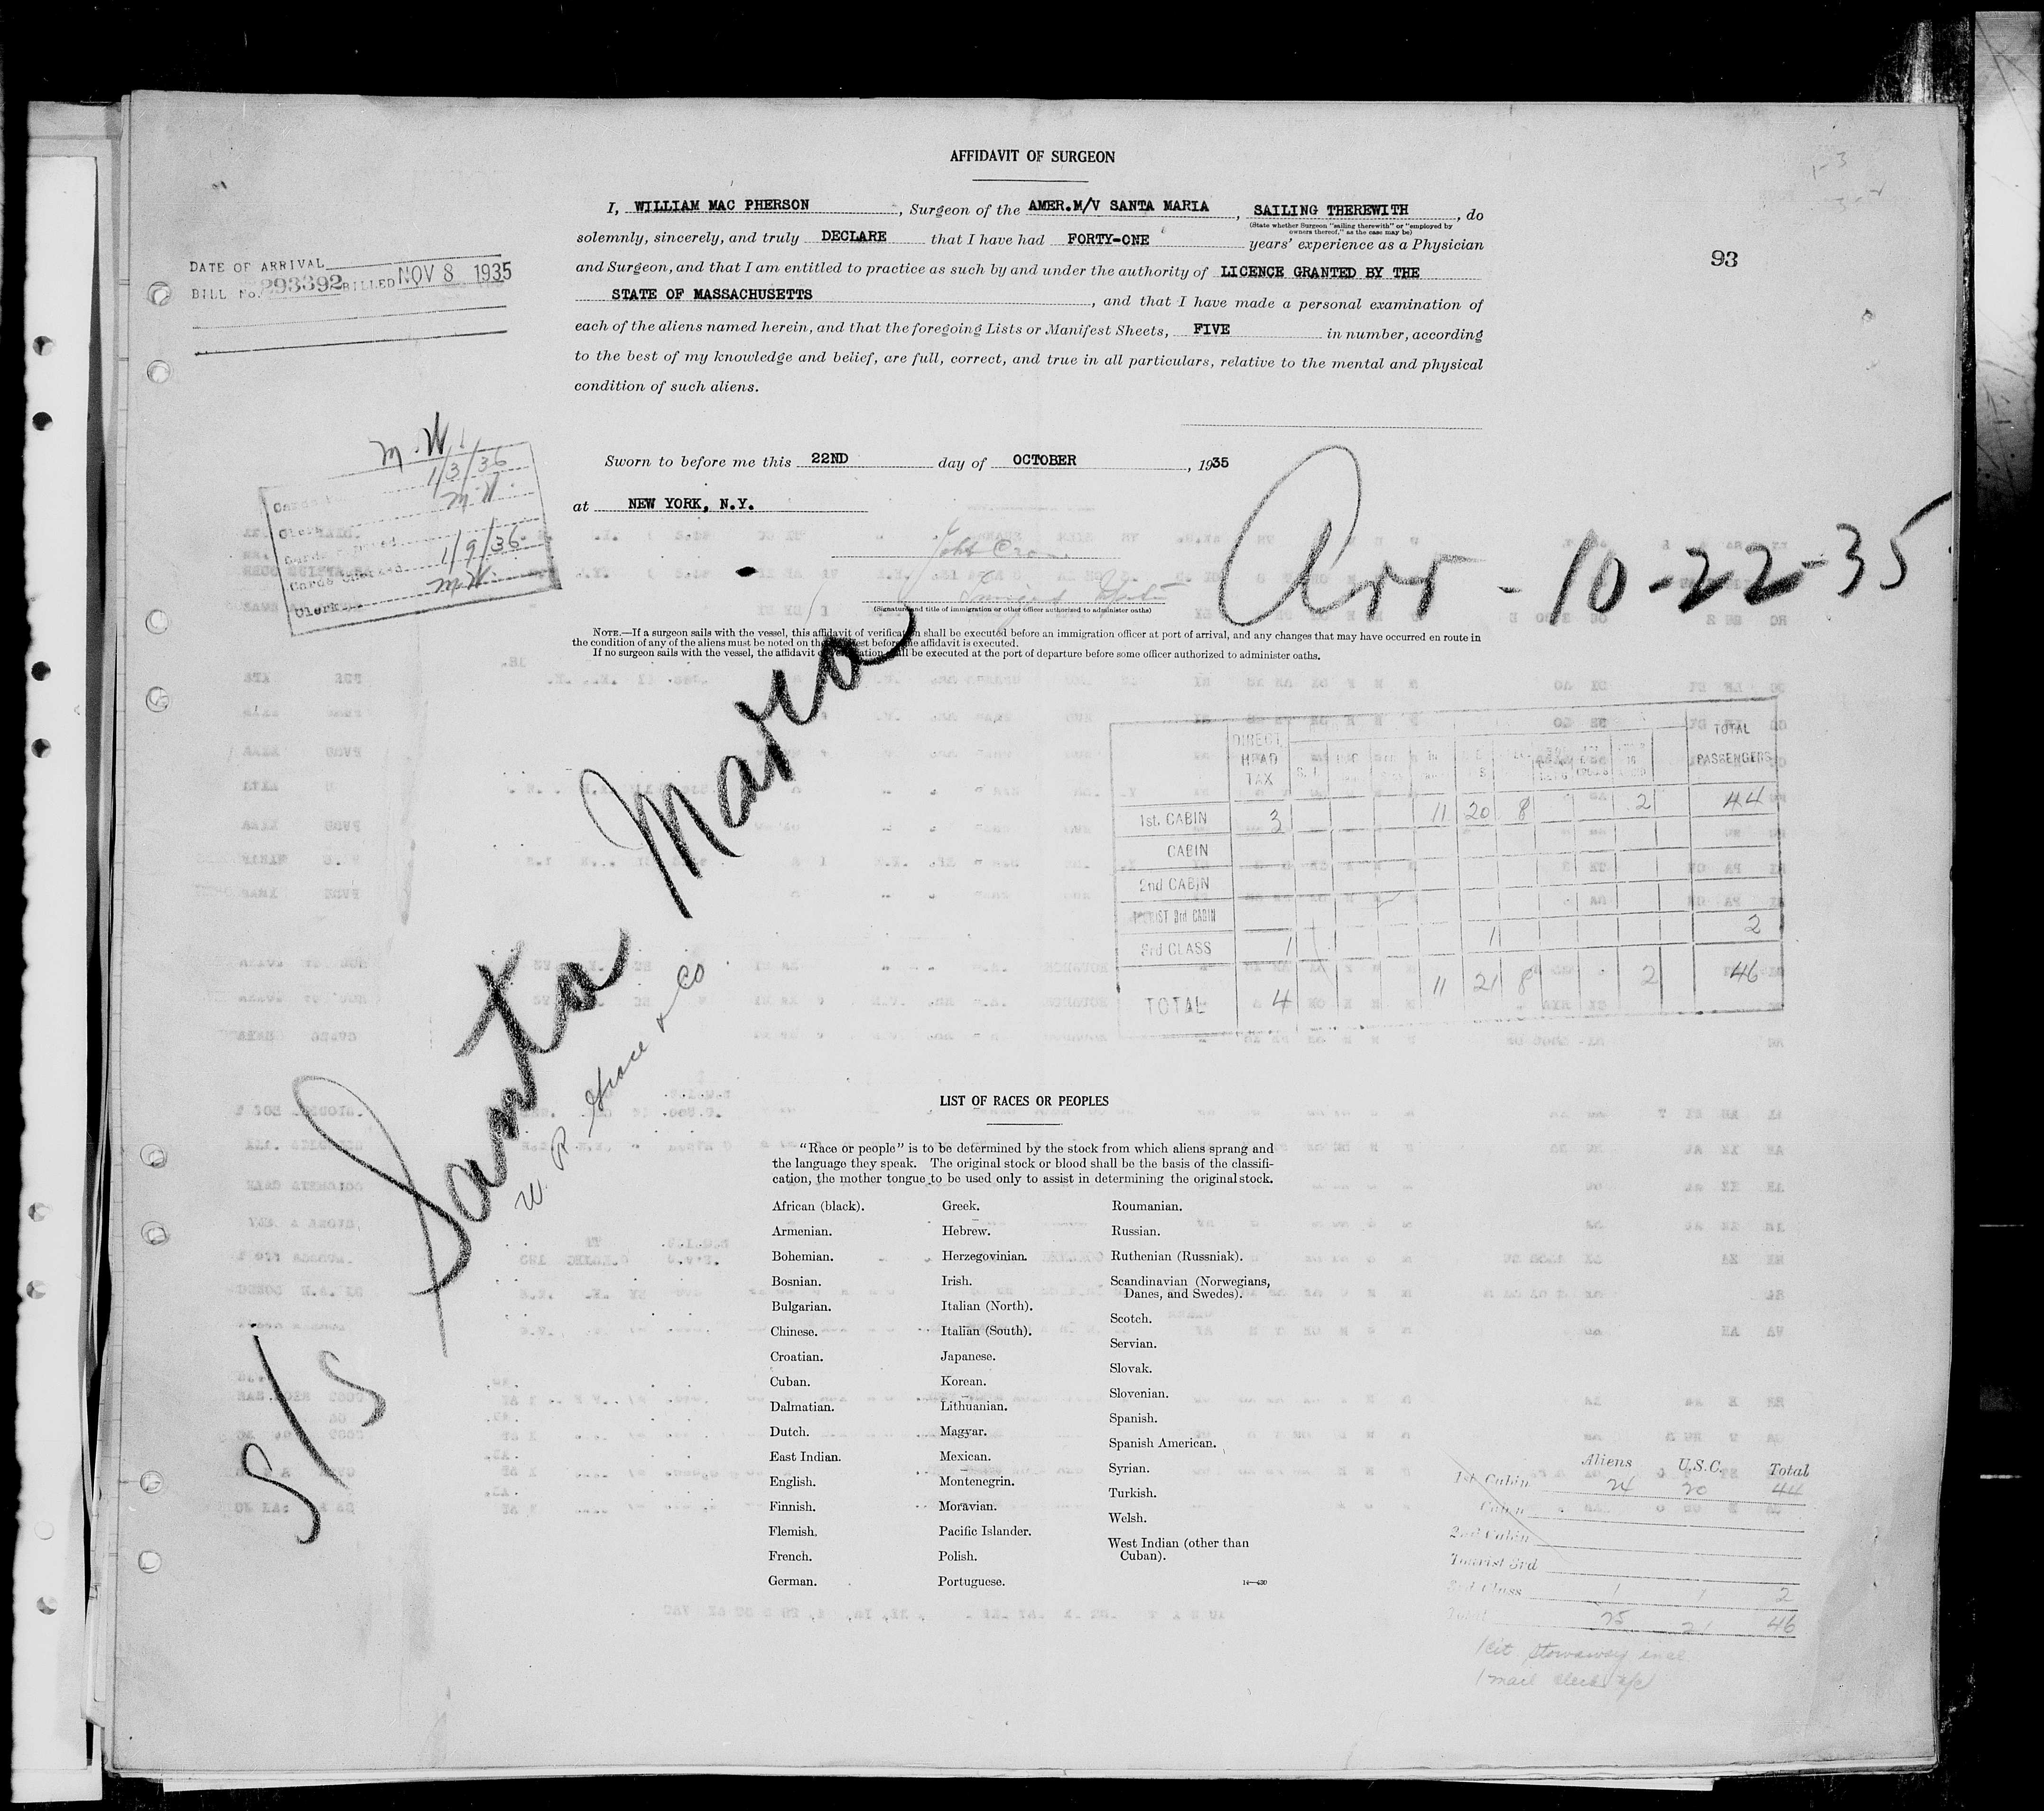 AFFIDAVIT OF SURGEON
I, WILLIAM MAC PHERSON, Surgeon of the AMER.M/V SANTA MARIA, SAILING THEREWITH, do
(State whether Surgeon "sailing therewith" or "employed by owners thereof," as the case may be)
solemnly, sincerely, and truly DECLARE that I have had FORTY-ONE years' experience as a Physician
and Surgeon, and that I am entitled to practice as such by and under the authority of LICENCE GRANTED BY THE
STATE OF MASSACHUSETTS, and that I have made a personal examination of
each of the aliens named herein, and that the foregoing Lists or Manifest Sheets, FIVE in number, according
to the best of my knowledge and belief, are full, correct, and true in all particulars, relative to the mental and physical
condition of such aliens.
93
DATE OF ARRIVAL
BILL No. 293392 BILLED NOV 8 1935
M.W.
1/3/36
M.W.
Clerk
1/9/36
Cards Checked
M.W.
Clerk
Sworn to before me this 22ND day of OCTOBER, 1935
at NEW YORK, N.Y.
(Signature and title of immigration or other officer authorized to administer oaths)
Arr - 10-22-35
NOTE.—If a surgeon sails with the vessel, this affidavit of verification shall be executed before an immigration officer at port of arrival, and any changes that may have occurred en route in
the condition of any of the aliens must be noted on the manifest before the affidavit is executed.
If no surgeon sails with the vessel, the affidavit of verification shall be executed at the port of departure before some officer authorized to administer oaths.
S/S Santa Maria
W. R. Grace & Co.
DIRECT HEAD TAX TOTAL PASSENGERS
1st. CABIN 3 11 20 8 2 44
CABIN
2nd CABIN
TOURIST 3rd CABIN
3rd CLASS 1 1 2
TOTAL 4 11 21 8 2 46
LIST OF RACES OR PEOPLES
"Race or people" is to be determined by the stock from which aliens sprang and
the language they speak. The original stock or blood shall be the basis of the classifi-
cation, the mother tongue to be used only to assist in determining the original stock.
African (black).
Armenian.
Bohemian.
Bosnian.
Bulgarian.
Chinese.
Croatian.
Cuban.
Dalmatian.
Dutch.
East Indian.
English.
Finnish.
Flemish.
French.
German.
Greek.
Hebrew.
Herzegovinian.
Irish.
Italian (North).
Italian (South).
Japanese.
Korean.
Lithuanian.
Magyar.
Mexican.
Montenegrin.
Moravian.
Pacific Islander.
Polish.
Portuguese.
Roumanian.
Russian.
Ruthenian (Russniak).
Scandinavian (Norwegians,
Danes, and Swedes).
Scotch.
Servian.
Slovak.
Slovenian.
Spanish.
Spanish American.
Syrian.
Turkish.
Welsh.
West Indian (other than
Cuban).
Aliens U.S.C. Total
1st Cabin 24 20 44
Cabin
2nd Cabin
Tourist 3rd
3rd Class 1 1 2
Total 25 21 46
1 cit stowaway incl.
1 mail clerk